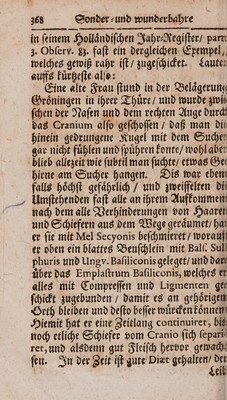 368 Sonder- und wunderbahre
in seinem Holländischen Jahr-Register/ part.
3. Observ. 83. fast ein dergleichen Exempel,
welches gewiß rahr ist/ zugeschicket. Lautet
auffs kürtzeste also:
Eine alte Frau stund in der Belägerung
Gröningen in ihrer Thüre/ und wurde zwi-
schen der Nasen und dem rechten Auge durch
das Cranium also geschossen/ daß man die
hinein gedrungene Kugel mit dem Sucher
gar nicht fühlen und spühren konte/ wohl aber
blieb allezeit wie subtil man suchte/ etwas Ge-
hirne am Sucher hangen. Dis war eben-
falls höchst gefährlich/ und zweiffelten die
Umstehenden fast alle an ihrem Auffkommen
nach dem alle Verhinderungen von Haaren
und Schiefern aus dem Wege geräumet/ hat
er sie mit Mel Secyonis beschmieret/ worauff
er oben ein blattes Beuschlein mit Balf. Sul-
phuris und Ungv. Basiliconis geleget/ und dar-
über das Emplastrum Basiliconis, welches er
alles mit Compressen und Ligmenten ge-
schickt zugebunden/ damit es an gehörigen
Orth bleiben und desto besser würcken können
Hiemit hat er eine Zeitlang continuiret, bis
noch etliche Schiefer vom Cranio sich separi-
ret, und alsdenn gut Fleisch hervor gewach-
sen. In der Zeit ist gute Diæt gehalten/ der
Leib